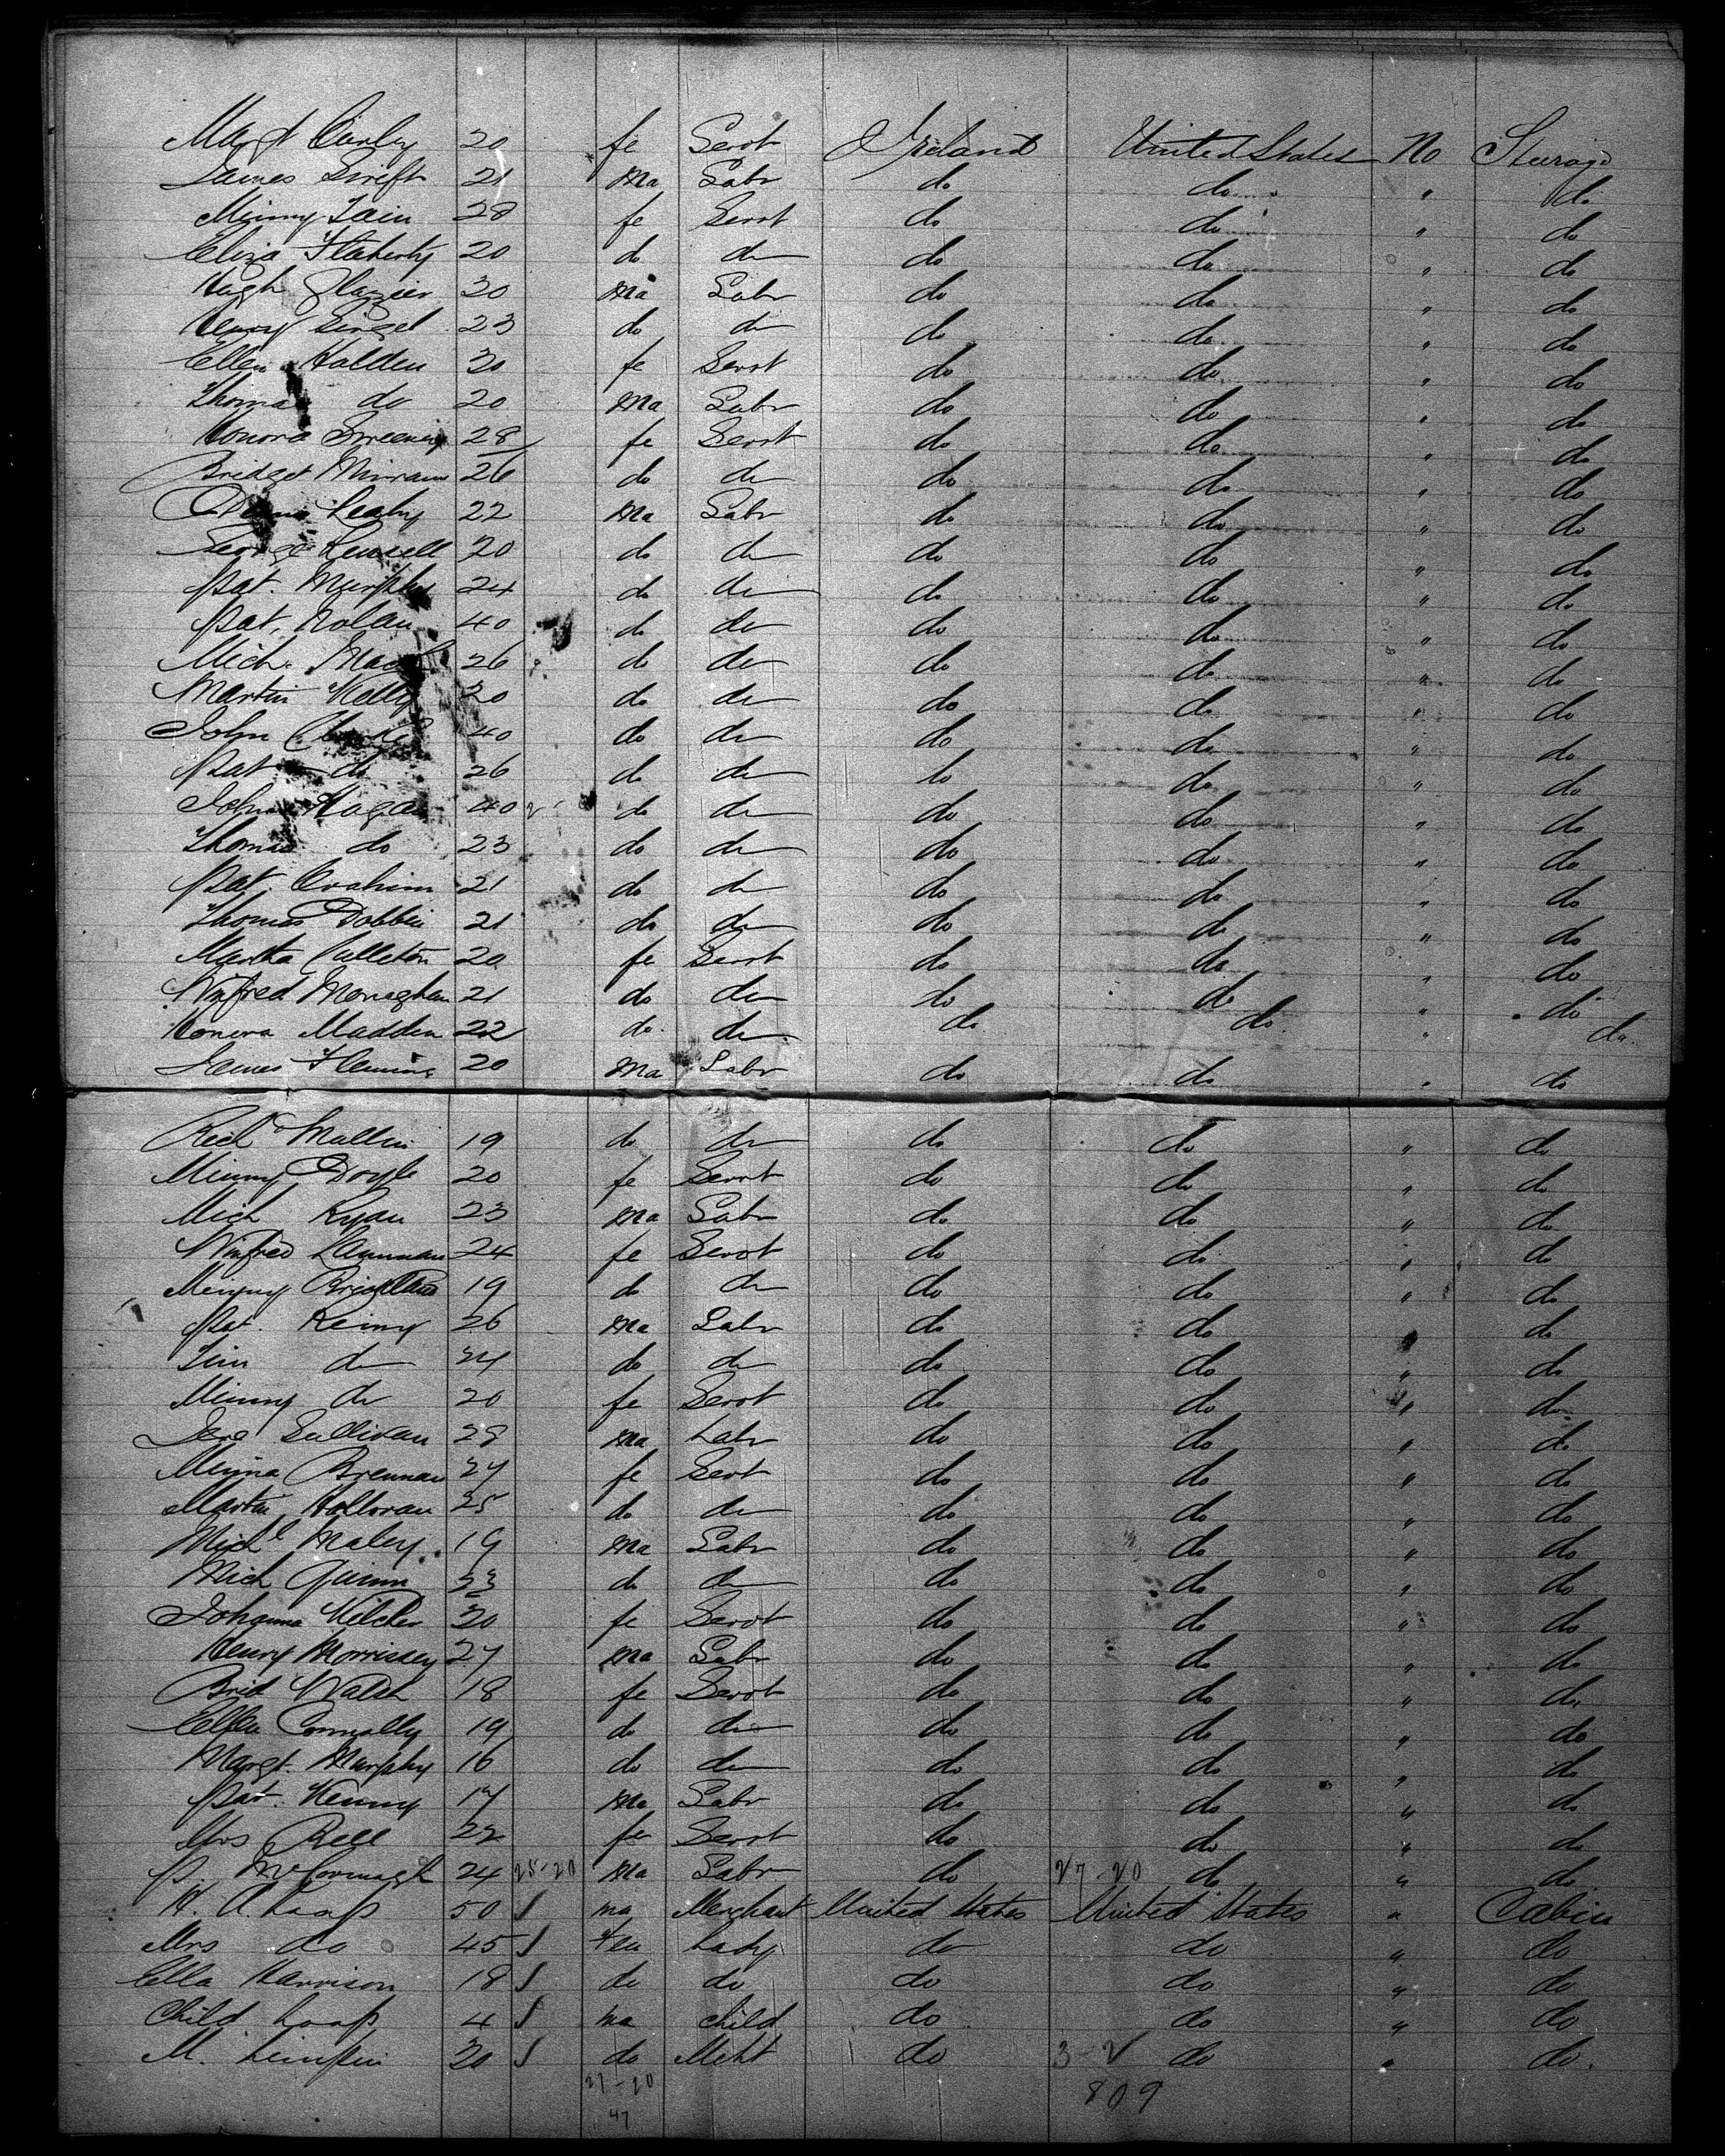 Margt Curley 20 fe Servt Ireland United States No Steerage
James Swift 21 Ma Labr do do " do
Minny 28 fe Servt do do " do
Eliza Flaherty 20 do do do do " do
Hugh Glazier 30 Ma Labr do do " do
Henry 23 do do do do " do
Ellen Holden 30 fe Servt do do " do
Thomas do 20 Ma Labr do do " do
Honora Sweeney 28 fe Servt do do " do
Bridget 26 do do do do " do
Leahy 22 Ma Labr do do " do
George 20 do do do do " do
Pat. Murphy 24 do do do do " do
Pat. Nolan 40 do do do do " do
Mich. 26 do do do do " do
Martin Kelly 20 do do do do " do
John 40 do do do do " do
Pat do 26 do do do do " do
John Hogan 40 do do do do " do
Thomas do 23 do do do do " do
Pat. 21 do do do do " do
Thomas Dobbin 21 do do do do " do
Martha Culleton 20 fe Servt do do " do
Winfred Monaghan 21 do do do do " do
Honora Madden 22 do do do do " do
James Fleming 20 Ma Labr do do " do
Richd Mullin 19 do do do do " do
Minny Doyle 20 fe Servt do do " do
Mich Ryan 23 Ma Labr do do " do
Winfred 24 fe Servt do do " do
Minny 19 do do do do " do
Pat. 26 Ma Labr do do " do
Jim do 24 do do do do " do
Minny do 20 fe Servt do do " do
Sullivan 28 Ma Labr do do " do
Minna Brennan 27 fe Servt do do " do
Martin Halloran 25 do do do do " do
Michl Maley 19 Ma Labr do do " do
Mich Quinn 23 do do do do " do
Johanna Kilcher 20 fe Servt do do " do
Henry Morrissey 27 Ma Labr do do " do
Brid Walsh 18 fe Servt do do " do
Ellen Connolly 19 do do do do " do
Margt. Murphy 16 do do do do " do
Pat. Kenny 17 Ma Labr do do " do
Mrs Bell 22 fe Servt do do " do
P. McCormack 24 25-20 Ma Labr do 27-20 do " do
H. A. Loop 50 ma Merchant United States United States " Cabin
Mrs do 45 fem Lady do do " do
Ella Harrison 18 do do do do " do
Child Loop 4 ma child do do " do
M. 20 do Mcht do 3-2 do " do.
27-20 809
47